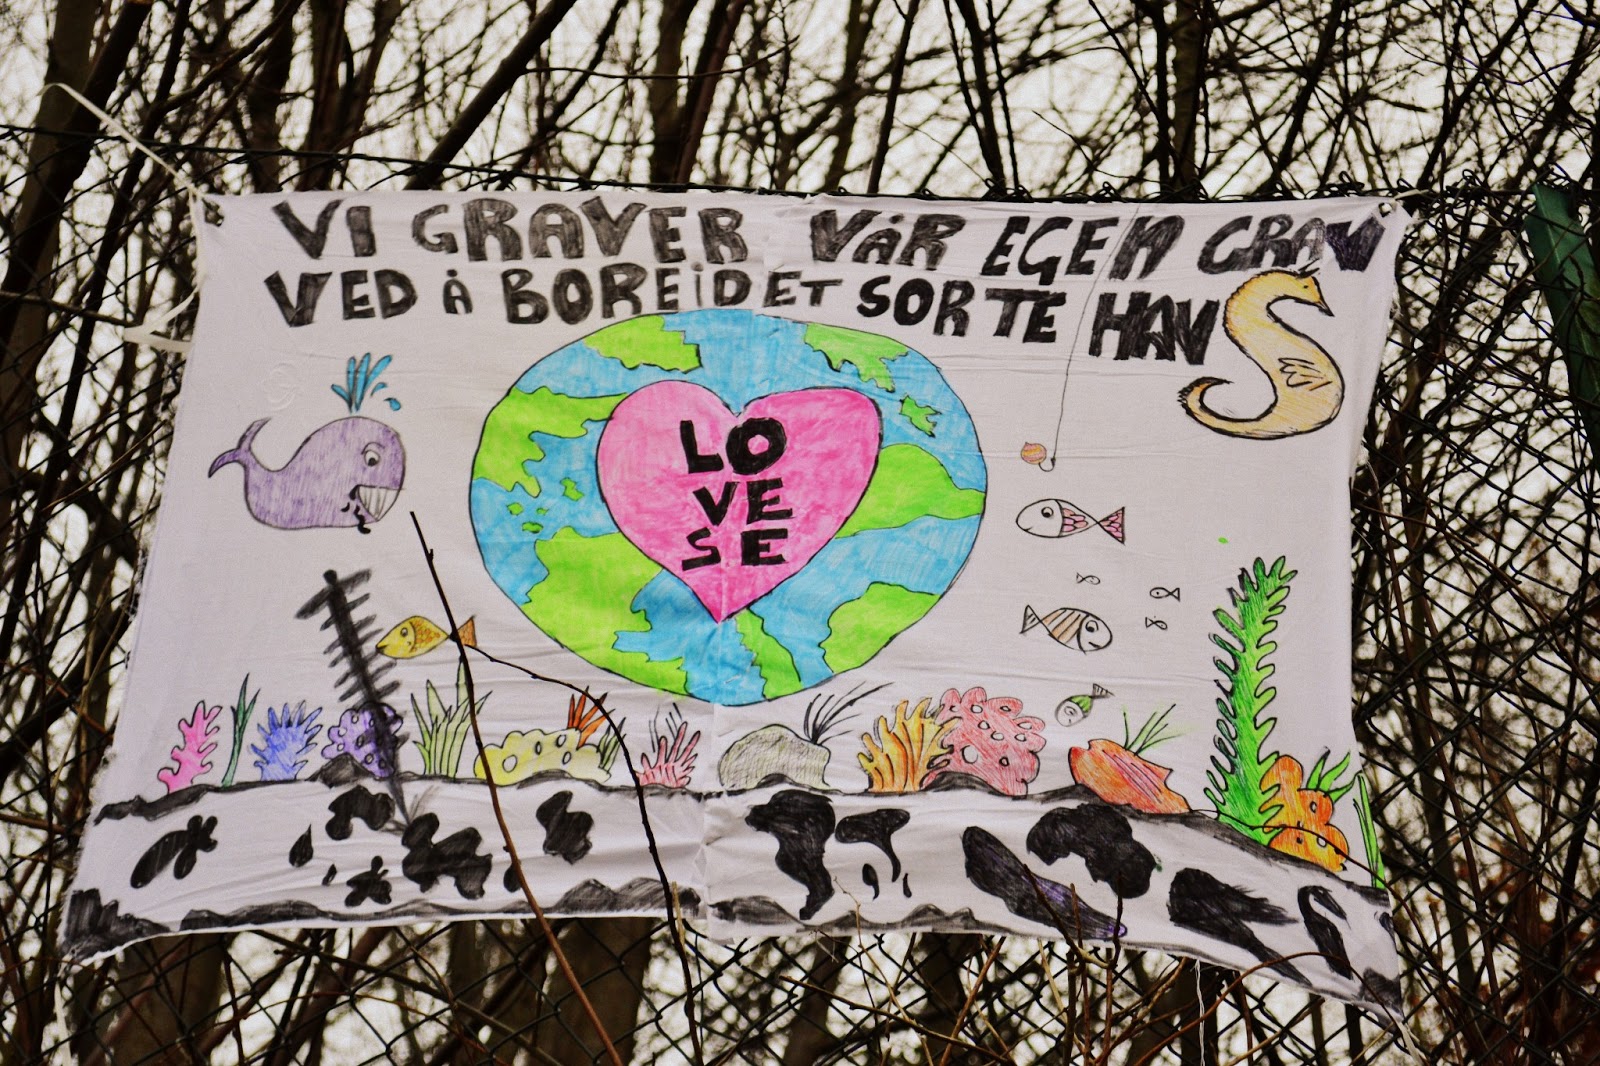 VI GRAVER VÅR EGEN GRAV
VED Å BORE i DET SORTE HAV
LO
VE
SE